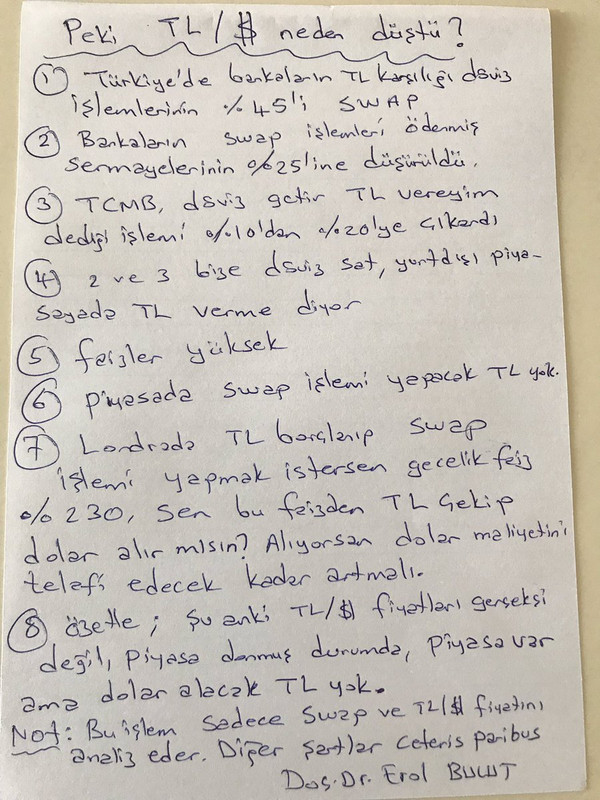 Peki TL/$ neden düştü?
① Türkiye'de bankaların TL karşılığı döviz
işlemlerinin %45'i SWAP
② Bankaların swap işlemleri ödenmiş
sermayelerinin %25'ine düşürüldü.
③ TCMB, döviz getir TL vereyim
dediği işlemi %10'dan %20'ye çıkardı
④ 2 ve 3 bize döviz sat, yurtdışı piya-
sayada TL verme diyor
⑤ faizler yüksek
⑥ Piyasada swap işlemi yapacak TL yok.
⑦ Londrada TL borçlanıp swap
işlemi yapmak istersen gecelik faiz
%230, Sen bu faizden TL çekip
dolar alır mısın? Alıyorsan dolar maliyetini
telafi edecek kadar artmalı.
⑧ özetle; şu anki TL/$ fiyatları gerçekçi
değil, piyasa donmuş durumda, piyasa var
ama dolar alacak TL yok.
Not: Bu işlem sadece swap ve TL/$ fiyatını
analiz eder. Diğer şartlar ceteris paribus
Doç. Dr. Erol BULUT